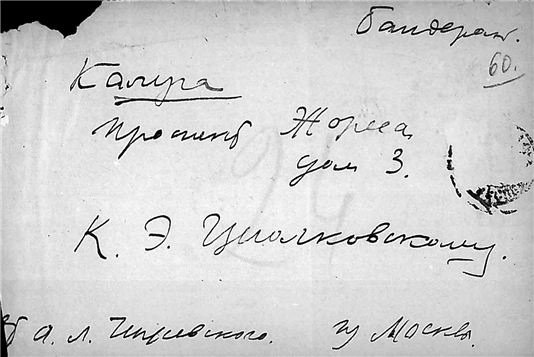 Бандерол.
60.
Калуга
проспект Жореса,
дом 3.
К. Э. Циолковскому.
А. Л. Чижевского. из Москвы